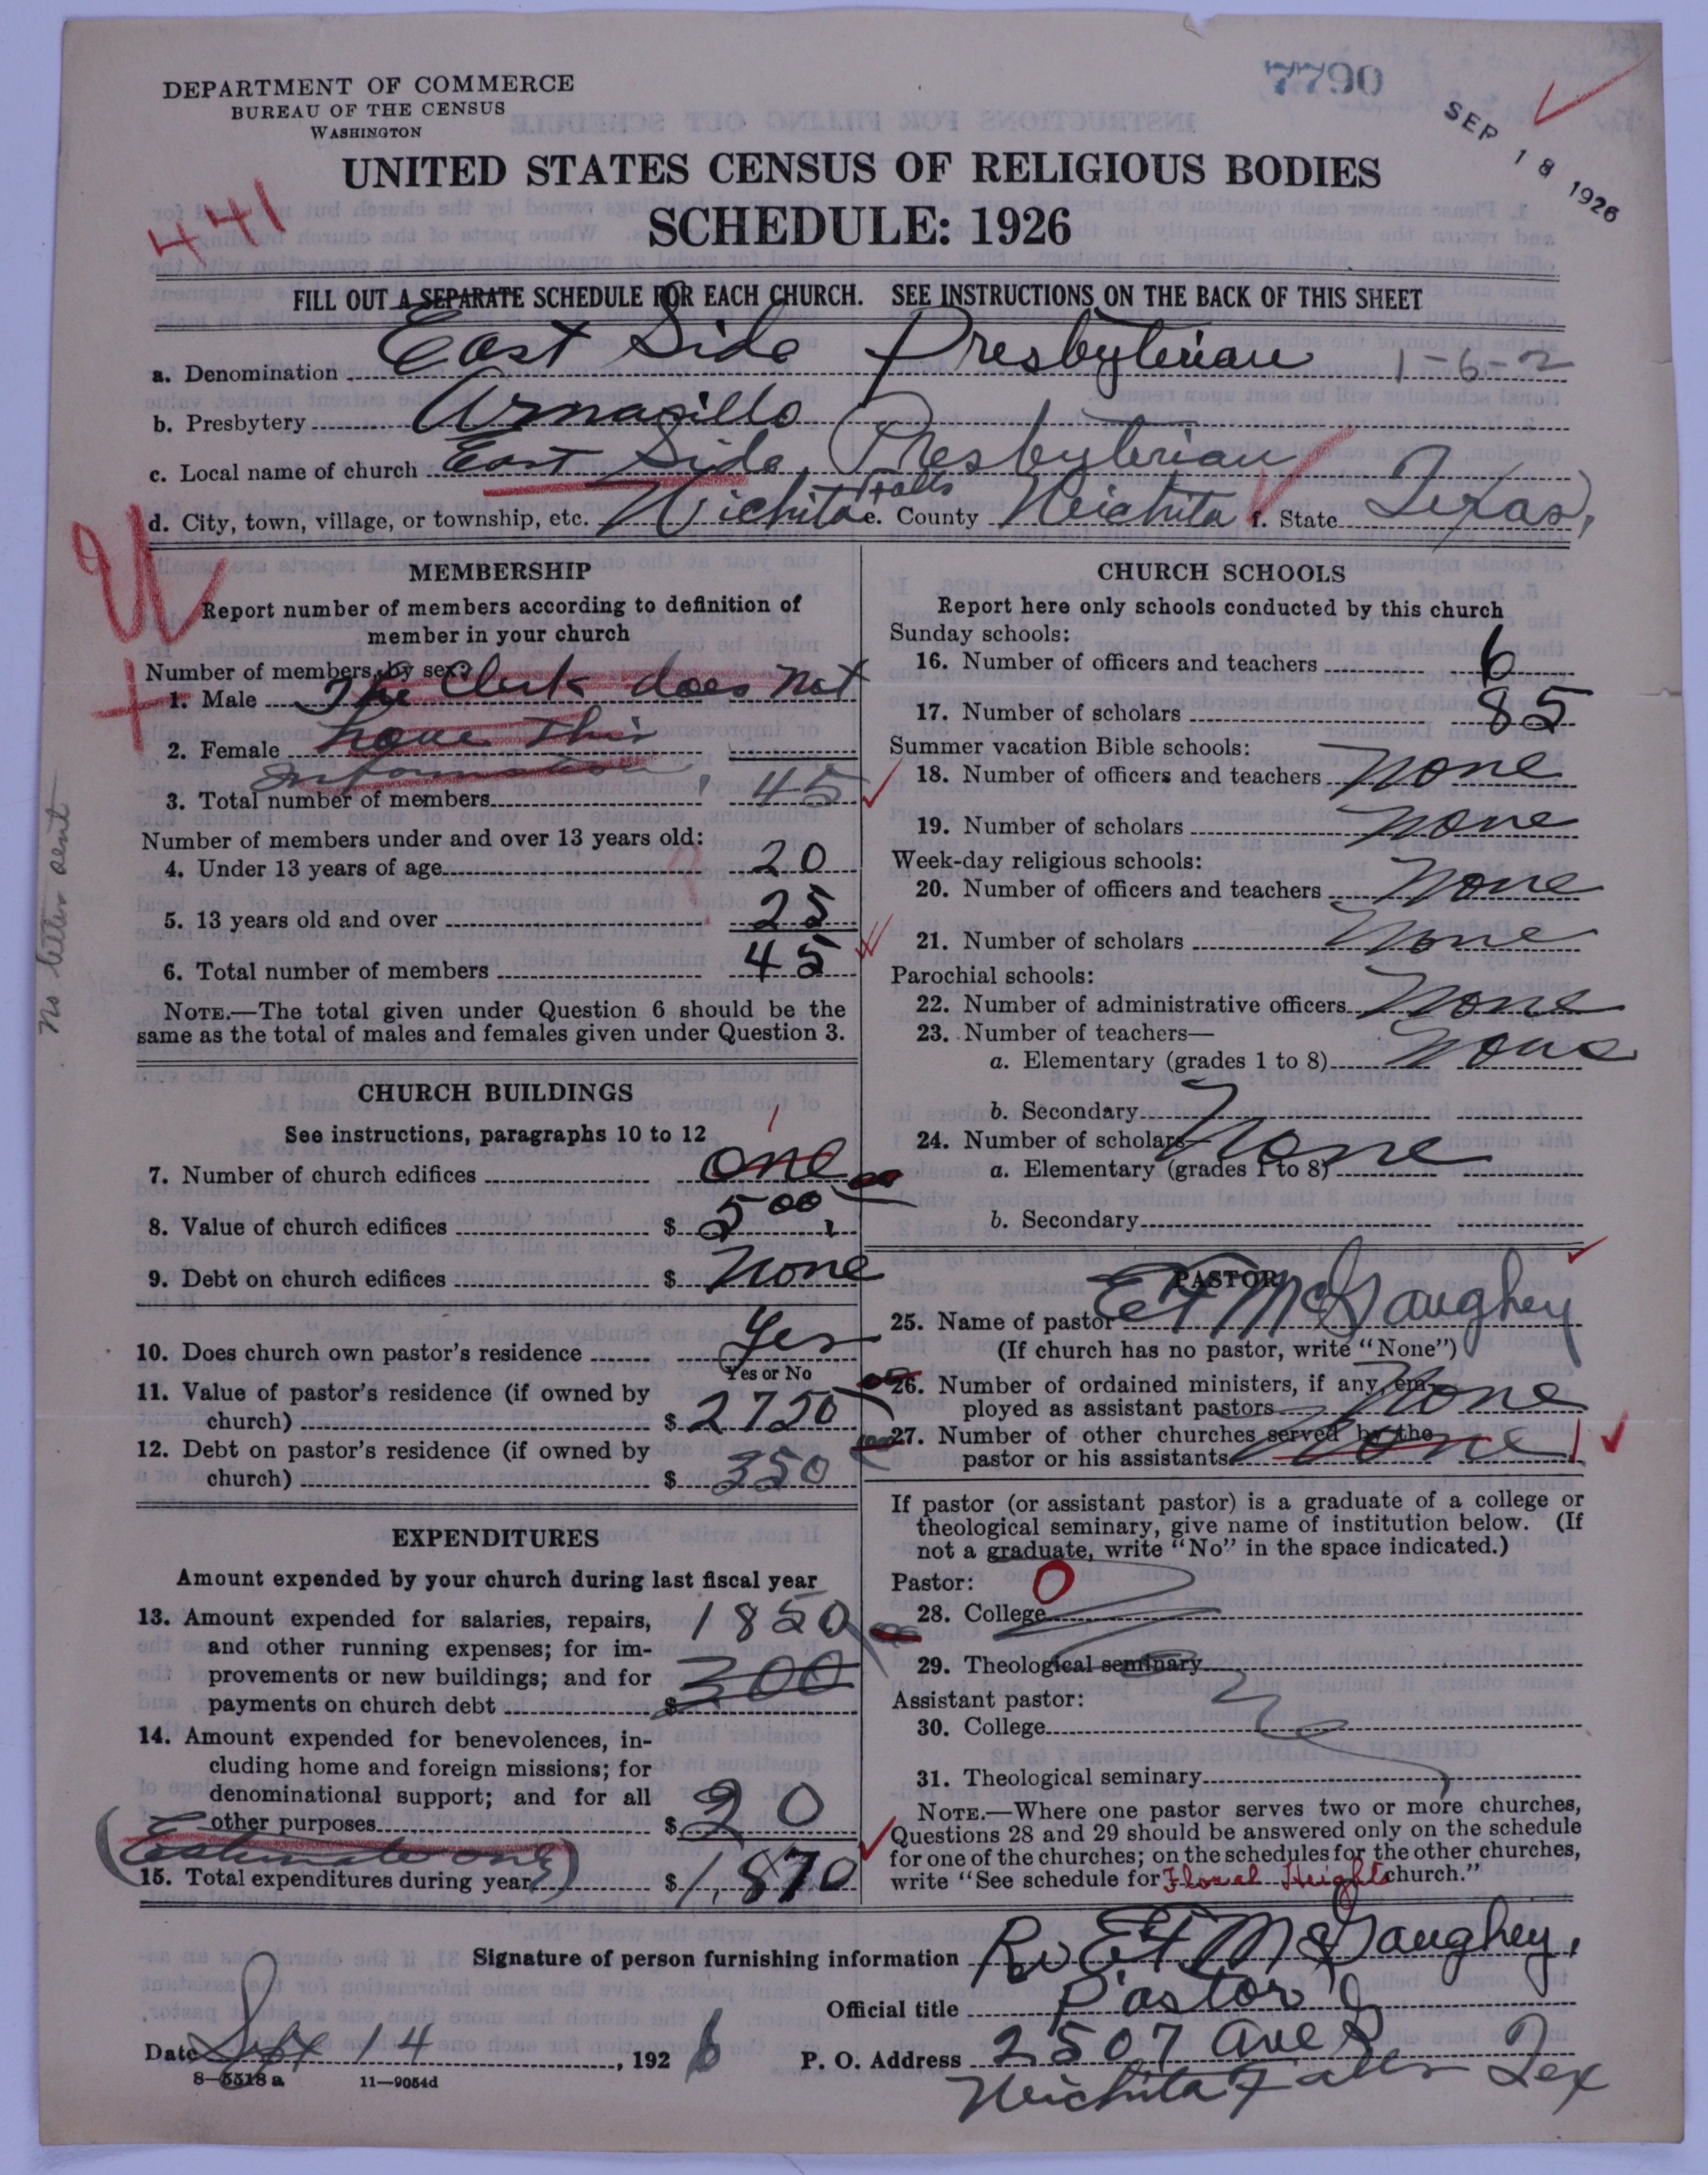 DEPARTMENT OF COMMERCE
BUREAU OF THE CENSUS
WASHINGTON
7790
SEP 18 1926
UNITED STATES CENSUS OF RELIGIOUS BODIES
441
SCHEDULE: 1926
FILL OUT A SEPARATE SCHEDULE FOR EACH CHURCH. SEE INSTRUCTIONS ON THE BACK OF THIS SHEET
a. Denomination East Side Presbyterian 1-6-2
b. Presbytery Armarillo
c. Local name of church East Side Presbyterian
d. City, town, village, or township, etc. Wichita Falls e. County Weichita f. State Texas,
MEMBERSHIP
Report number of members according to definition of
member in your church
Number of members, by sex:
1. Male The Clerk does not
2. Female have this
information
3. Total number of members 45
Number of members under and over 13 years old:
4. Under 13 years of age 20
5. 13 years old and over 25
6. Total number of members 45
NOTE.—The total given under Question 6 should be the
same as the total of males and females given under Question 3.
No letter sent
CHURCH BUILDINGS
See instructions, paragraphs 10 to 12
1
7. Number of church edifices one
8. Value of church edifices $ 500
9. Debt on church edifices $ None
10. Does church own pastor's residence Yes
Yes or No
11. Value of pastor's residence (if owned by
church) $ 2750
12. Debt on pastor's residence (if owned by
church) $ 350
EXPENDITURES
Amount expended by your church during last fiscal year
13. Amount expended for salaries, repairs, 1850
and other running expenses; for im-
provements or new buildings; and for
payments on church debt $ 300
14. Amount expended for benevolences, in-
cluding home and foreign missions; for
denominational support; and for all
other purposes $ 20
15. Total expenditures during year $ 1,870
CHURCH SCHOOLS
Report here only schools conducted by this church
Sunday schools:
16. Number of officers and teachers 6
17. Number of scholars 85
Summer vacation Bible schools:
18. Number of officers and teachers None
19. Number of scholars None
Week-day religious schools:
20. Number of officers and teachers None
21. Number of scholars None
Parochial schools:
22. Number of administrative officers None
23. Number of teachers—
a. Elementary (grades 1 to 8) None
b. Secondary
24. Number of scholars—
a. Elementary (grades 1 to 8) None
b. Secondary
PASTOR
25. Name of pastor E T McGaughey
(If church has no pastor, write "None")
26. Number of ordained ministers, if any, em-
ployed as assistant pastors None
27. Number of other churches served by the
pastor or his assistants None 1
If pastor (or assistant pastor) is a graduate of a college or
theological seminary, give name of institution below. (If
not a graduate, write "No" in the space indicated.)
Pastor: O
28. College
29. Theological seminary
Assistant pastor:
30. College
31. Theological seminary
NOTE.—Where one pastor serves two or more churches,
Questions 28 and 29 should be answered only on the schedule
for one of the churches; on the schedules for the other churches,
write "See schedule for Floral Heights church."
Signature of person furnishing information Rev E T McGaughey,
Official title Pastor
Date Sept 14, 1926 P. O. Address 2507 Ave
Wichita Falls Tex
8—5518 a 11—9054d